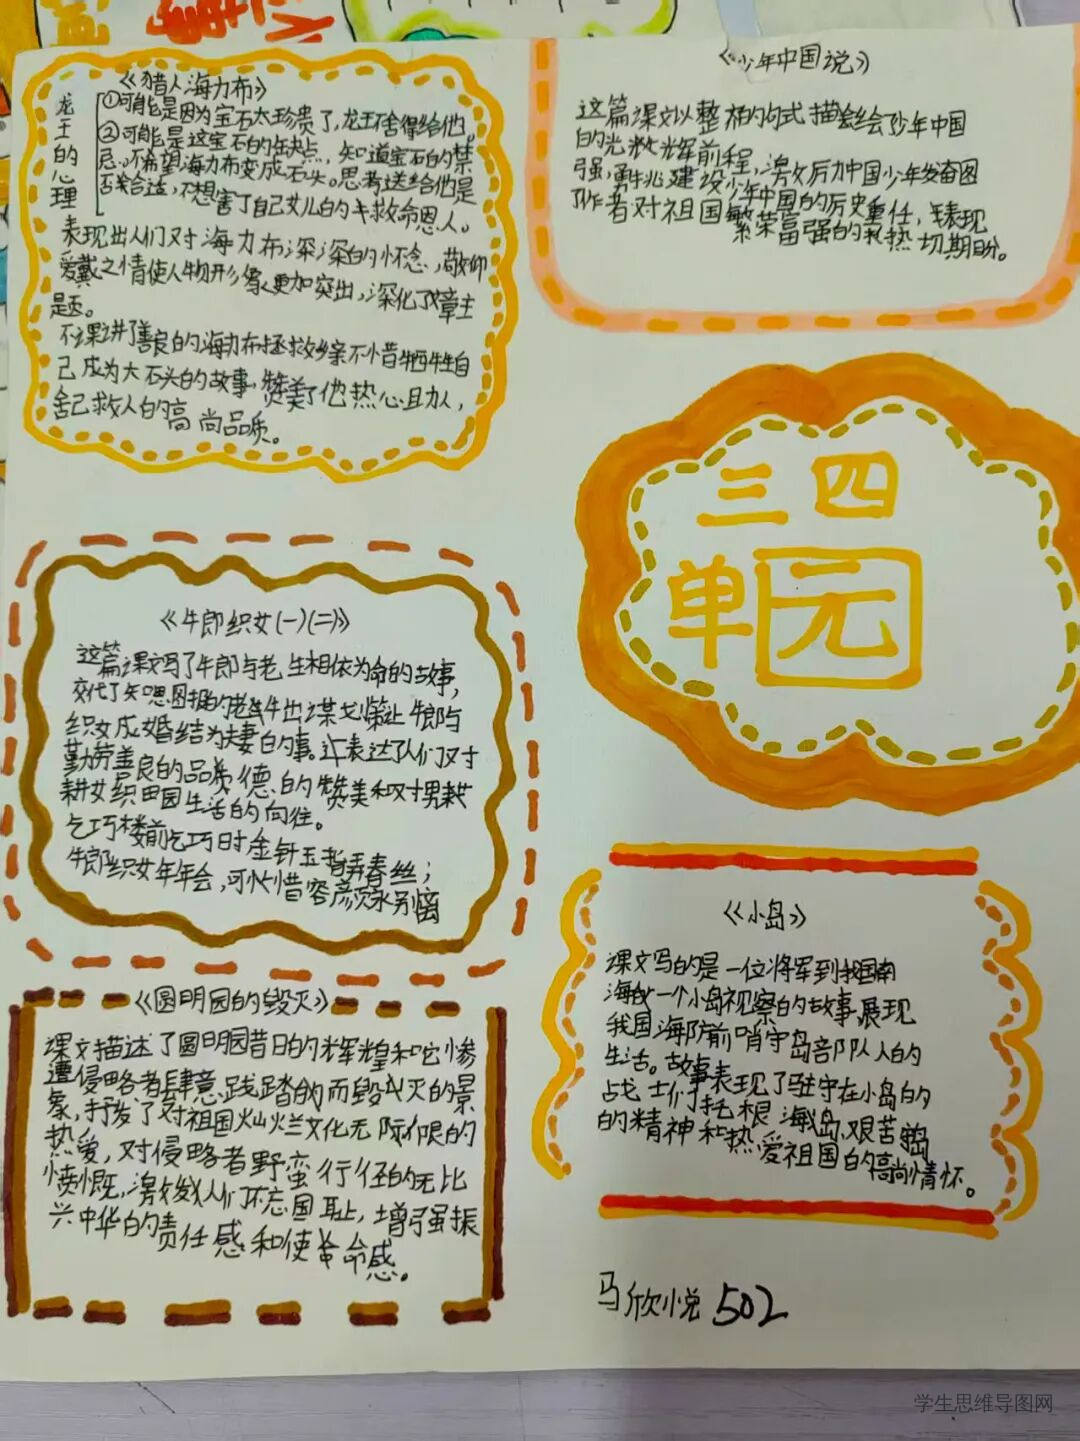 《猎人海力布》
龙王的心理
①可能是因为宝石太珍贵了,龙王不舍得给他。
②可能是这宝石的缺点,知道宝石的禁
忌。不希望海力布变成石头。思考送给他是
否合适,不想害了自己女儿的救命恩人。
表现出人们对海力布深深的怀念,敬仰
爱戴之情使人物形象更加突出,深化了文章主
题。
本课讲了善良的海力布拯救乡亲不惜牺牲自
己成为大石头的故事,赞美了他热心助人,
舍己救人的高尚品质。
《少年中国说》
这篇课文以整相的句式描绘少年中国
的光辉前程,激励中国少年发奋图
强,勇挑建设少年中国的历史重任,表现
了作者对祖国繁荣富强的热切期盼。
三四
单元
《牛郎织女(一)(二)》
这篇课文写了牛郎与老牛相依为命的故事,
交代了知恩图报的老牛出谋划策让牛郎与
织女成婚结为夫妻的事。表达了人们对
勤劳善良的品质德的赞美和对男耕
耕女织田园生活的向往。
乞巧楼前乞巧时金针五指弄春丝;
牛郎织女年年会,可惜容颜永别离
《圆明园的毁灭》
课文描述了圆明园昔日的辉煌和它惨
遭侵略者肆意践踏的而毁灭的景
象,抒发了对祖国灿烂文化无限的
热爱,对侵略者野蛮行径的无比
愤慨,激发人们不忘国耻,增强振
兴中华的责任感和使命感。
《小岛》
课文写的是一位将军到我国南
海的一个小岛视察的故事展现
我国海防前哨守岛部队人的
生活。故事表现了驻守在小岛的
战士们扎根海岛,艰苦
的精神和热爱祖国的高尚情怀。
马欣悦 502
学生思维导图网